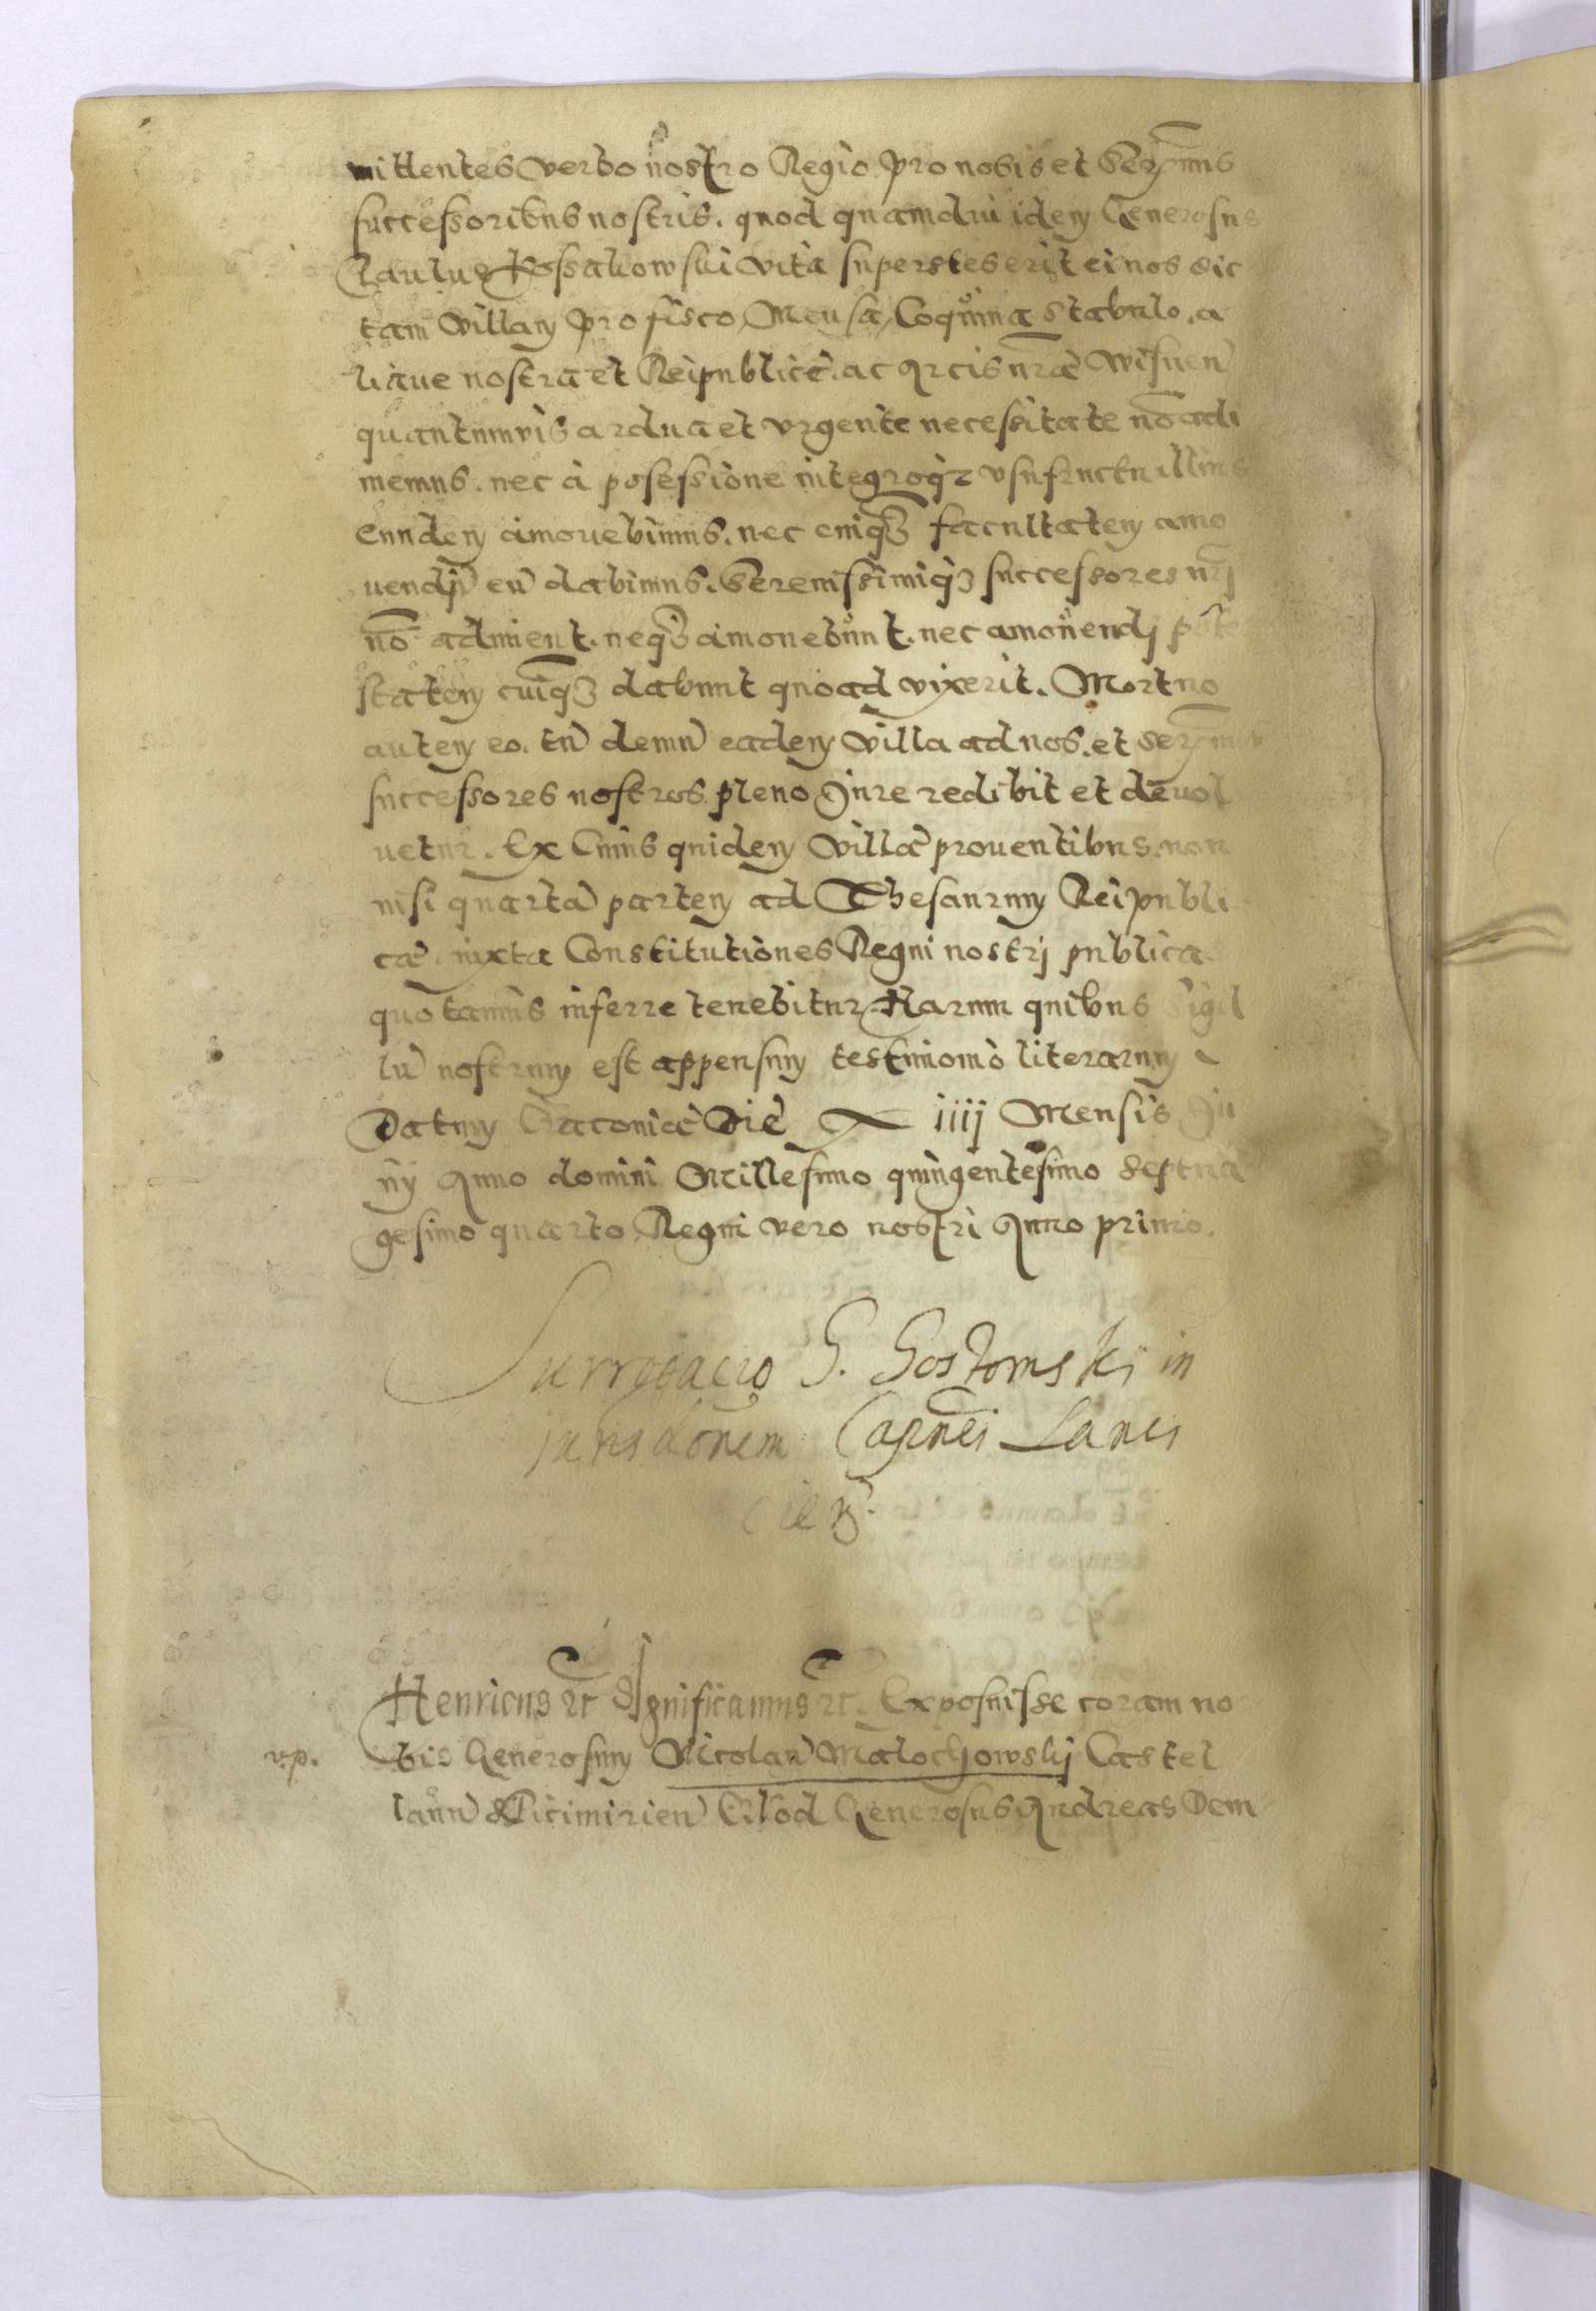 mittentes Verbo nostro Regio pro nobis et Serỹmis
successoribus nostris. quod quamdiu idem Generosus
Paulus Kossakowski Vita superstes erit ei nos dic
tam Villam pro fisco, Mensa, Coquina stabulo. a
liave nostra et Reipublicę. ac Arcis nrae Wisnen
quantumvis ardua et vrgente necessitate nō adi
memus. nec à posessione integroq3 vsufructu illius
eundem amouebimus. nec cuiq3 facultatem amo
uendi eū dabimus. Serenissimiq3 successores nrj
nō adiment. neq3 amouebunt. nec amouendj pote
statem cuiq3 dabunt quoad vixerit. Mortuo
autem eo. tū demū eadem Villa ad nos. et serỹmos
successores nostros pleno Iure redibit et deuol
uetur. Ex Cuius quidem Villae prouentibus. non
nisi quartā partem ad Thesaurum Reipubli
cae. iuxta Constitutiones Regni nostrj publica
quotannis inferre tenebitur. Harum quibus Sigil
lū nostrum est appensum testimonio literarum
Datum Cracouiae Die X iiij Mensis Iu
nÿ Anno domini Millesimo quingentesimo septua
gesimo quarto. Regni vero nostri Anno primo.
Surrogacio G. Gostomskj in
Capnei Lanci
cień.
Henricus etc Significamus etc. Exposuisse coram no
v.p. bis Generosum Nicolaū Malochowskj Castel
lanū Spicimirien Quod Generosus Andreas Dem